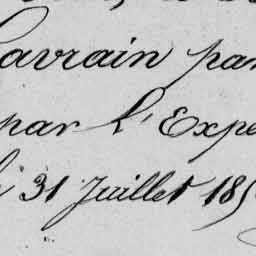 Lavrain par
par l'Expe
31 Juillet 185